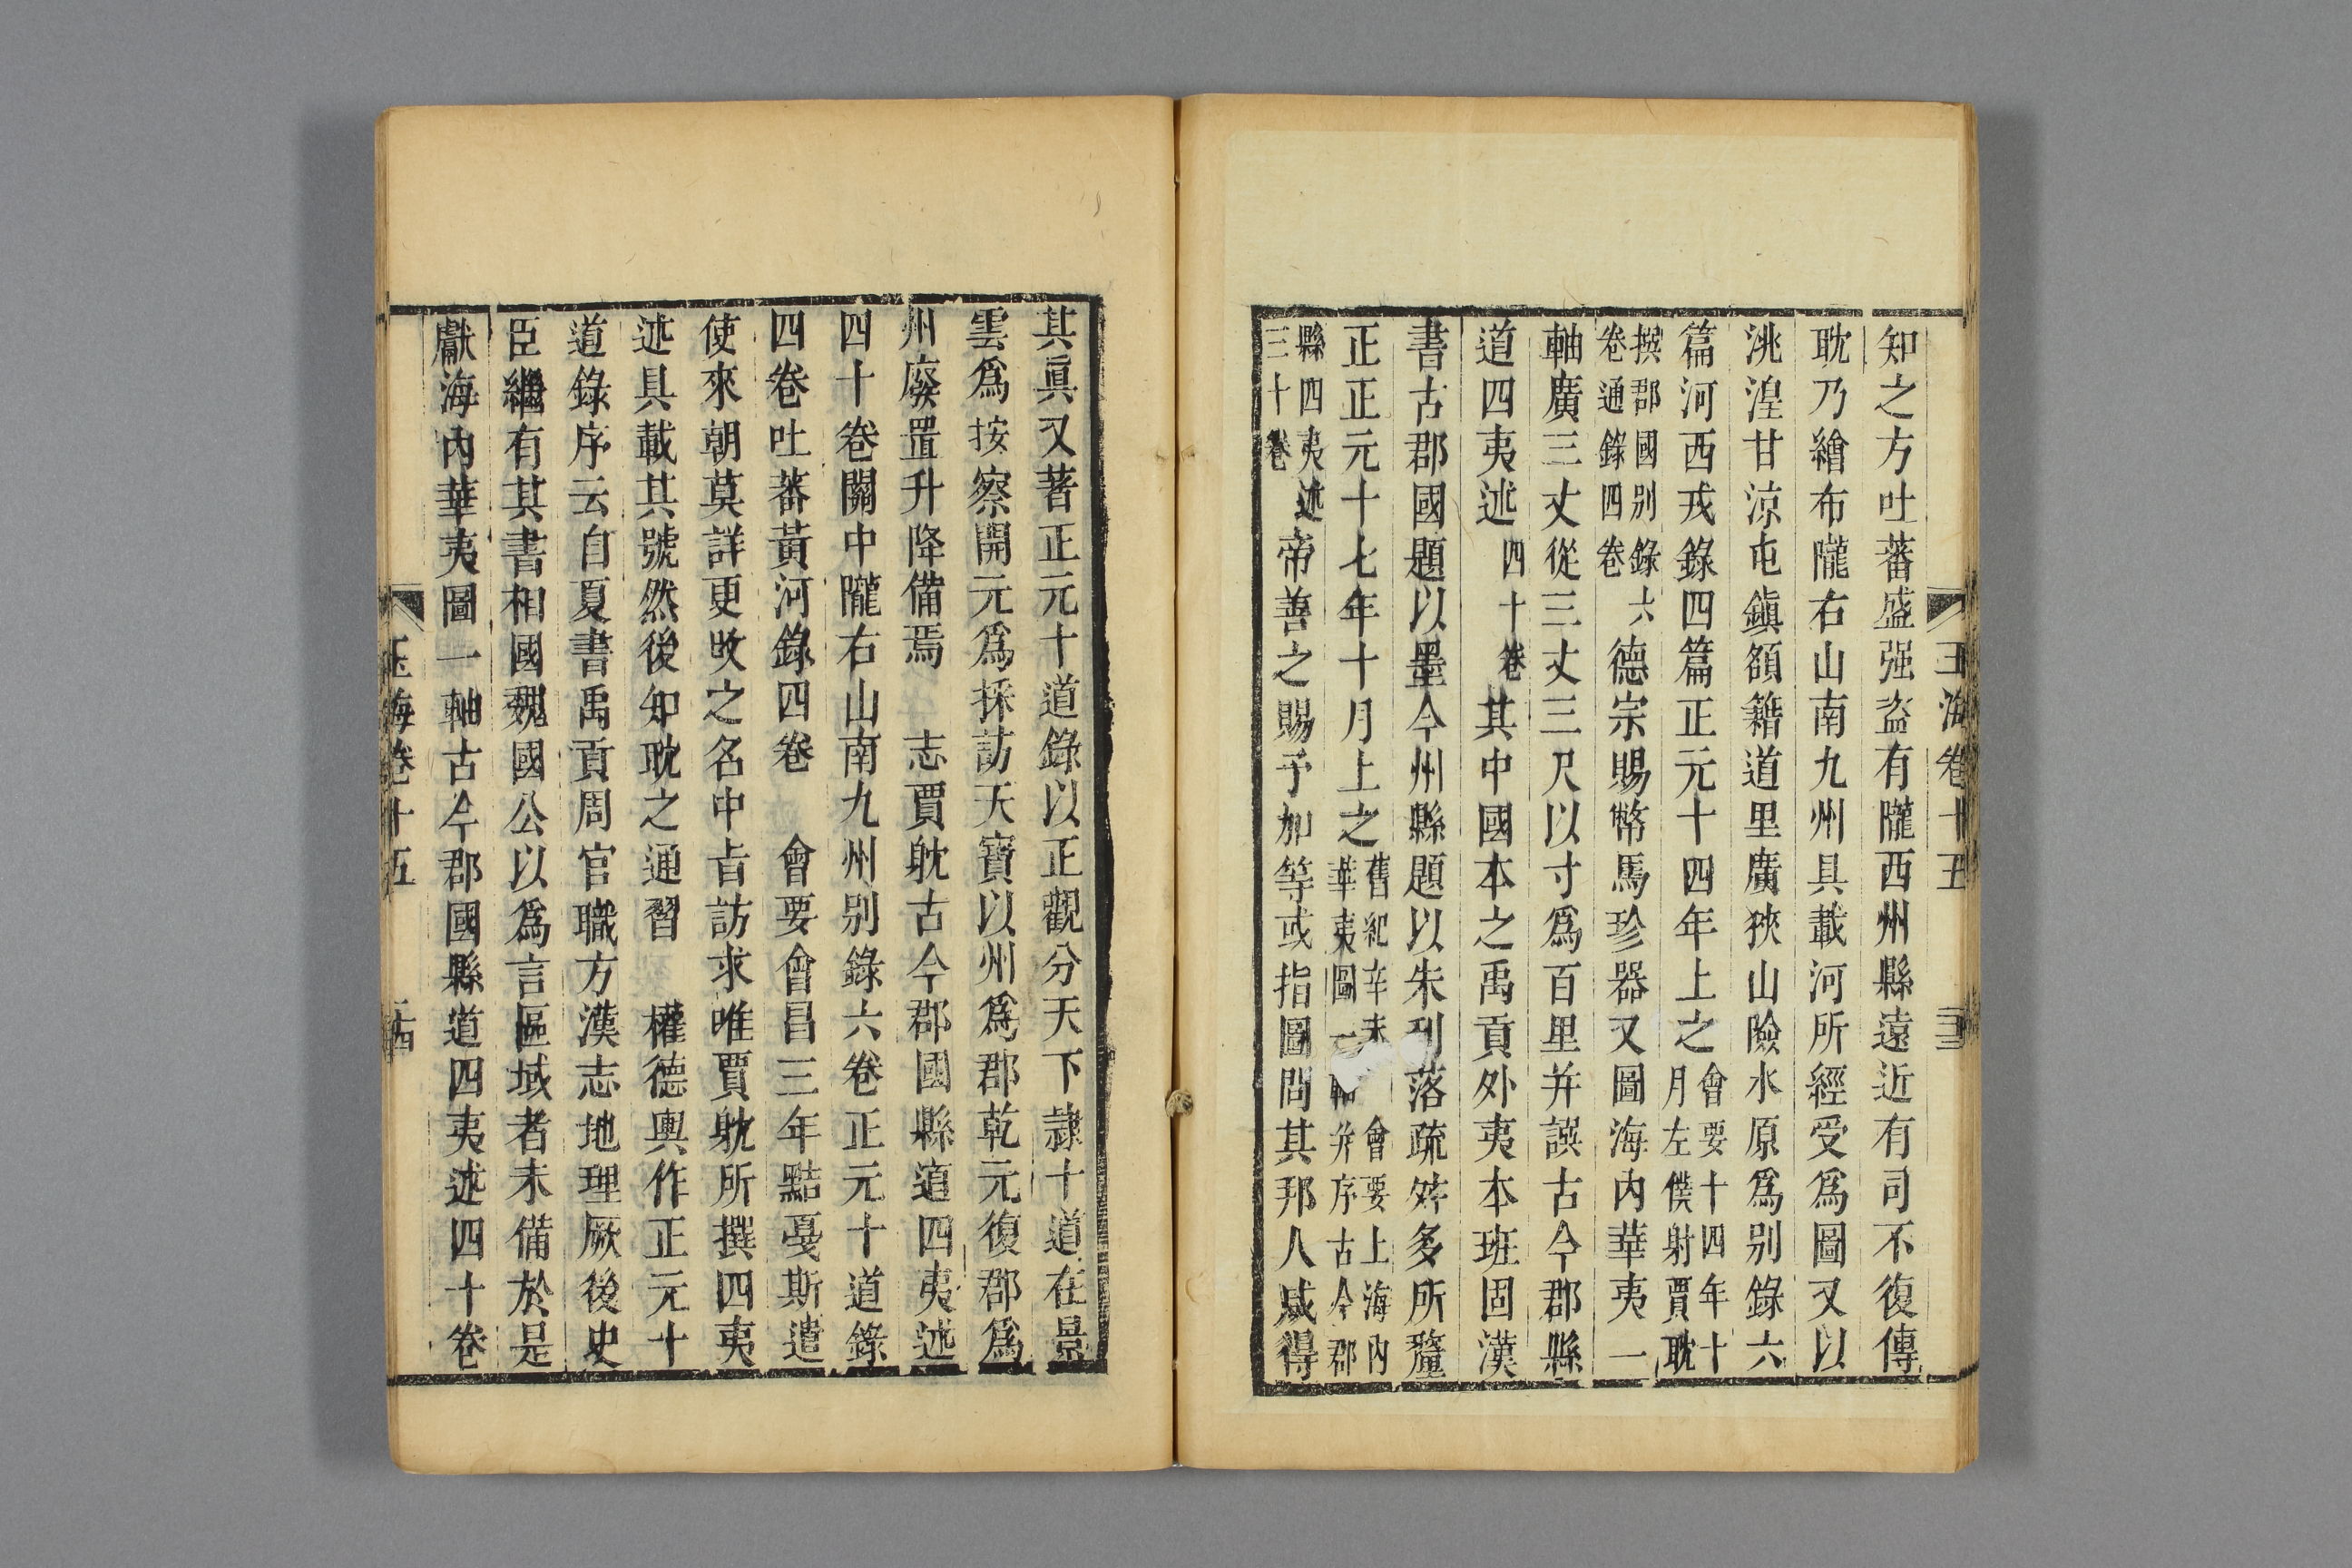 知之方吐蕃盛强盗有隴西州縣遠近有司不復傳
耽乃繪布隴右山南九州具載河所經受爲圖又以
洮湟甘涼屯鎭頟籍道里廣狹山險水原爲别錄六
篇河西戎錄四篇正元十四年上之會要十四年十
月左僕射賈耽
撰郡國别錄六
卷通錄四卷
德宗賜幣馬珍器又圖海内華夷一
軸廣三丈從三丈三尺以寸爲百里并譔古今郡縣
道四夷述四十卷其中國本之禹貢外夷本班固漢
書古郡國題以墨今州縣題以朱刋落疏舛多所釐
正正元十七年十月上之舊紀辛未會要上海内
華夷圖一軸并序古今郡
縣四夷述
三十卷
帝善之賜予加等或指圖問其邦人咸得
玉海卷十五
其眞又著正元十道錄以正觀分天下隷十道在景
雲爲按察開元爲採訪天寶以州爲郡乾元復郡爲
州廢置升降備焉 志賈躭古今郡國縣道四夷述
四十卷關中隴右山南九州别錄六卷正元十道錄
四卷吐蕃黃河錄四卷 會要會昌三年黠戞斯遣
使來朝莫詳更改之名中旨訪求唯賈躭所撰四夷
述具載其號然後知耽之通習 權德輿作正元十
道錄序云自夏書禹貢周官職方漢志地理厥後史
臣繼有其書相國魏國公以爲言區域者未備於是
獻海内華夷圖一軸古今郡國縣道四夷述四十卷
玉海卷十五